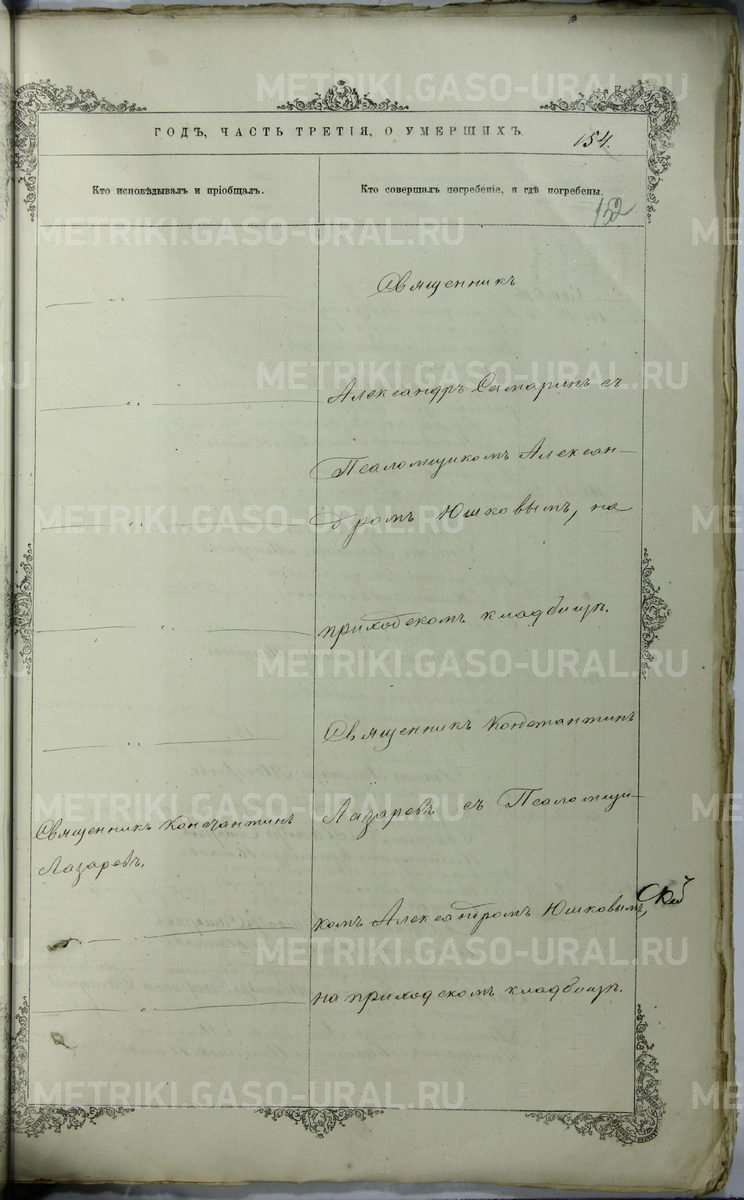 ГОДЪ, ЧАСТЬ ТРЕТІЯ, О УМЕРШИХЪ.
154.
Кто исповѣдывалъ и пріобщалъ.
Кто совершалъ погребеніе, и гдѣ погребены.
152
Священникъ
Александръ Самаринъ съ
Псаломщикомъ Алексан-
дромъ Юшковымъ, на
приходскомъ кладбищѣ.
Священникъ Константинъ
Лазаревъ съ Псаломщи-
Священникъ Константинъ
Лазаревъ.
комъ Александромъ Юшковымъ,
на приходскомъ кладбищѣ.
METRIKI.GASO-URAL.RU